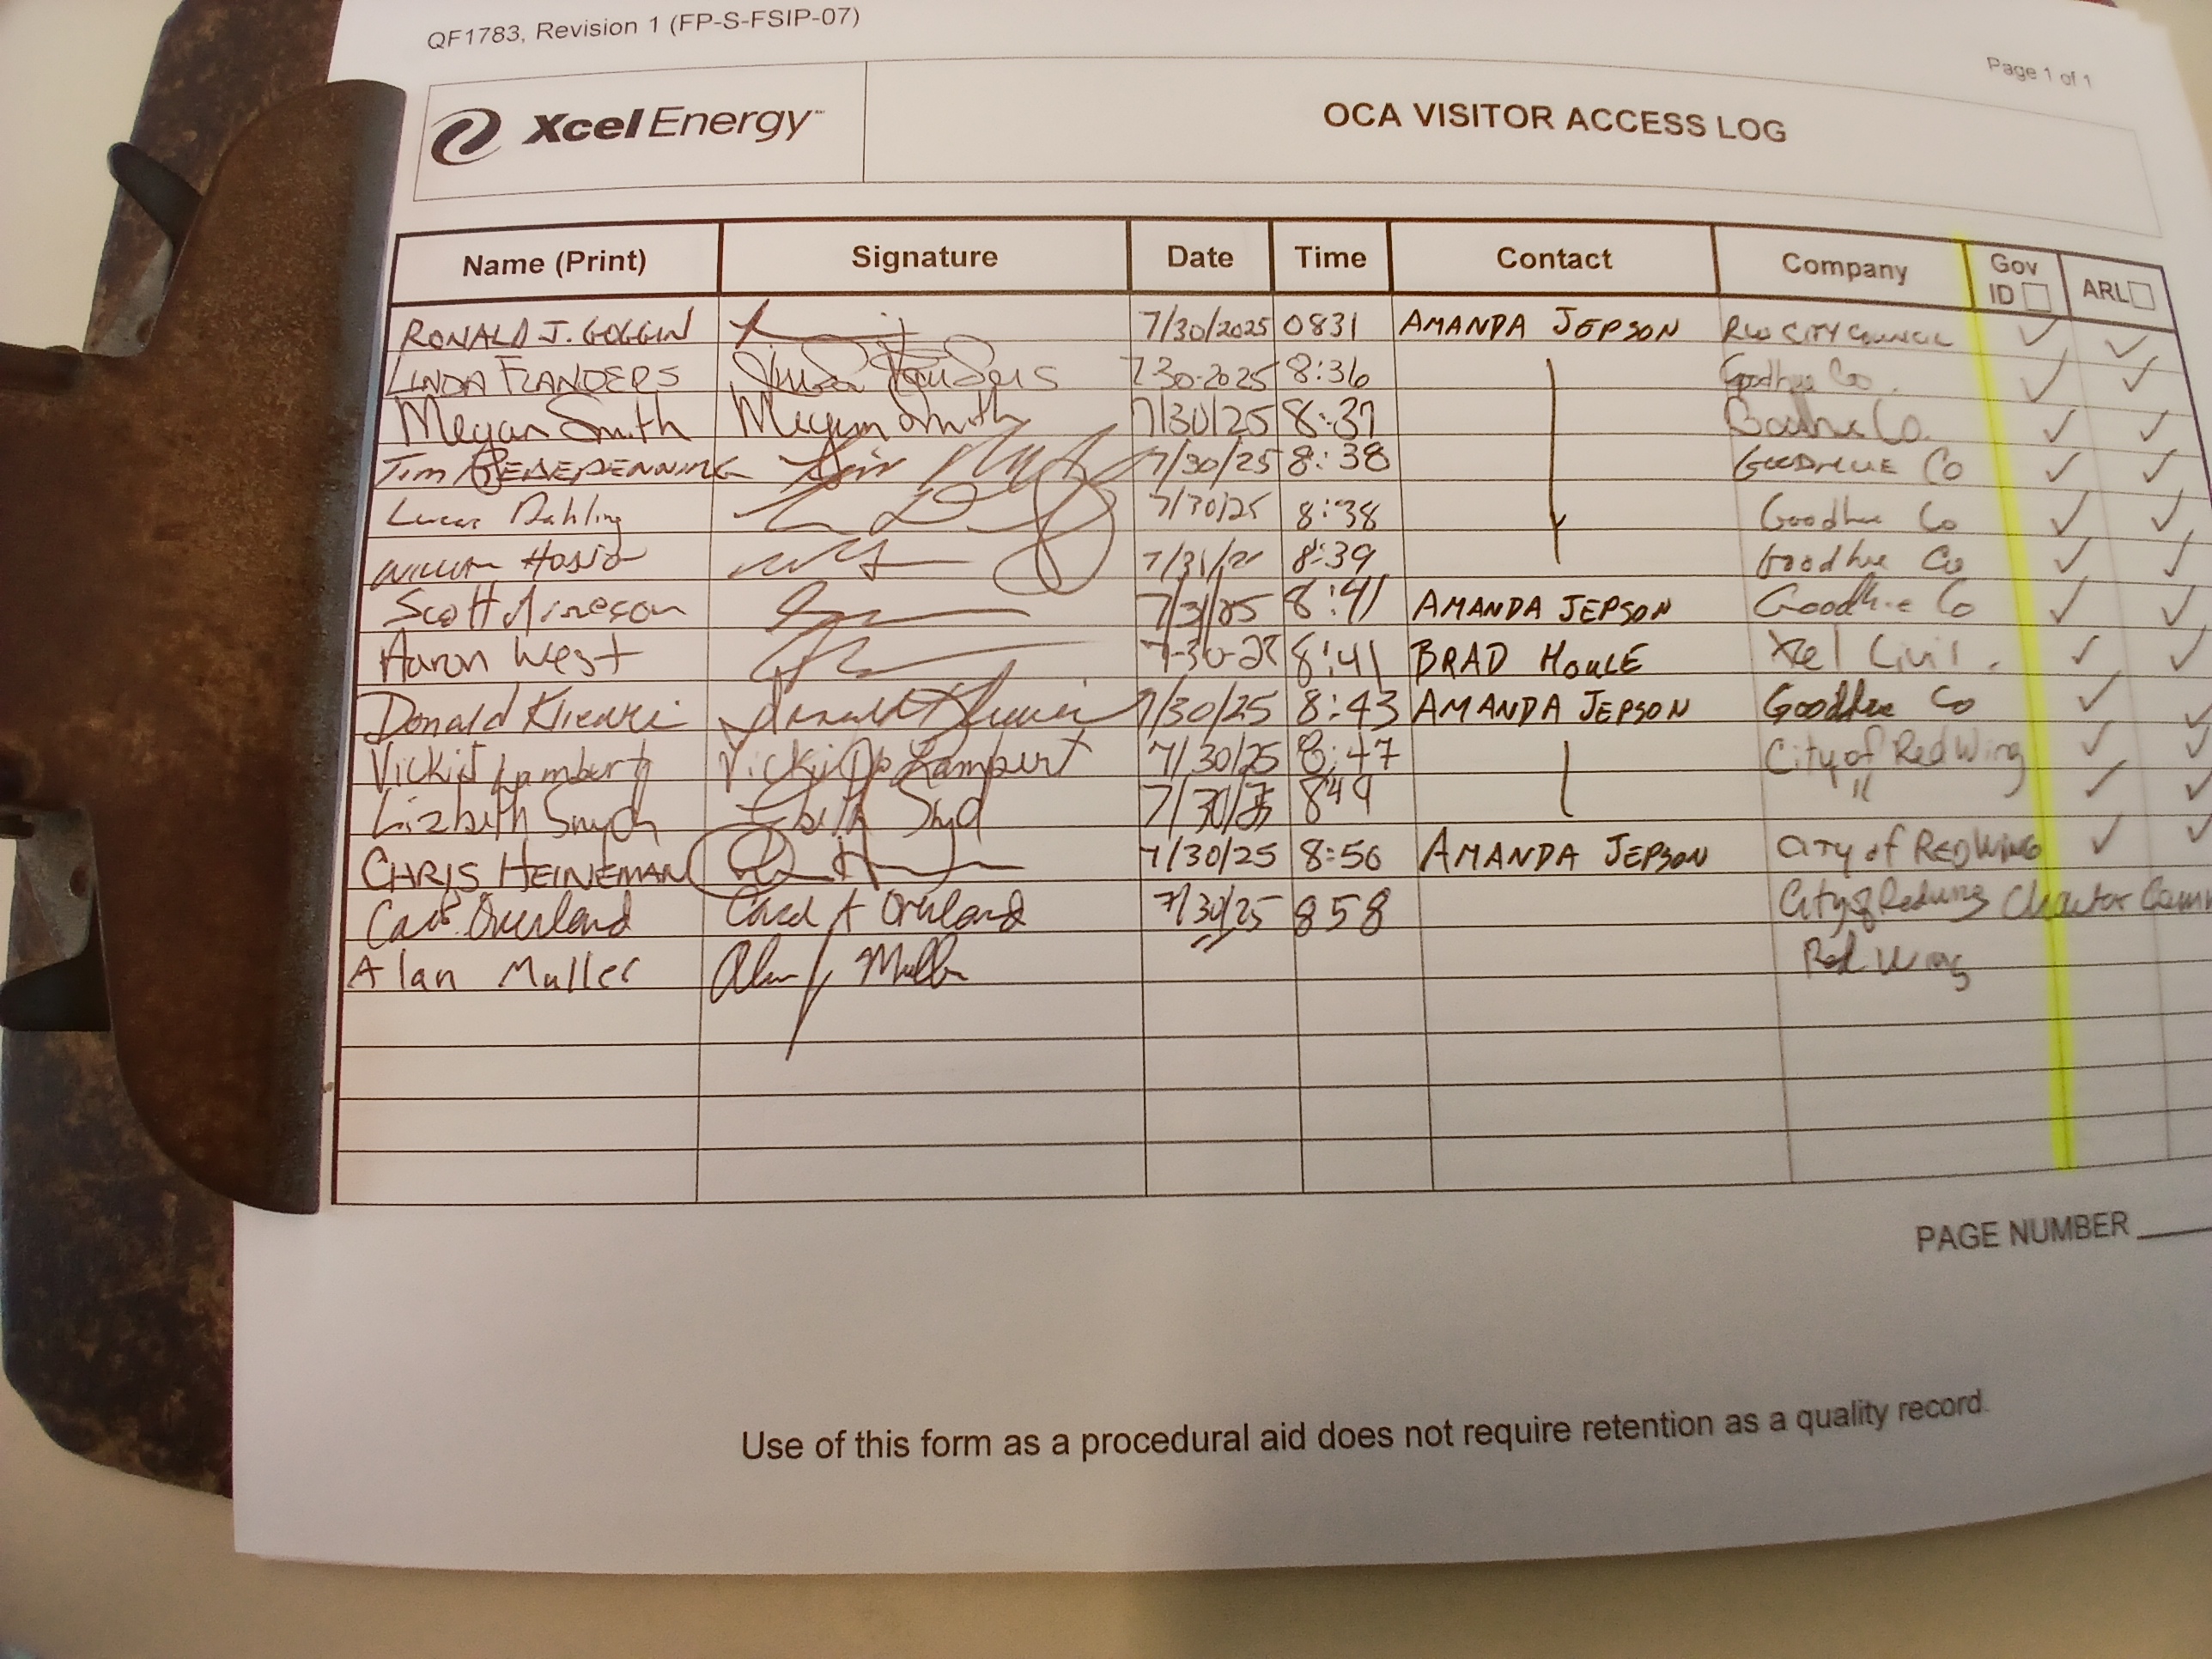 QF1783, Revision 1 (FP-S-FSIP-07)
Page 1 of 1
Xcel Energy
OCA VISITOR ACCESS LOG
Name (Print) Signature Date Time Contact Company Gov ID ARL
RONALD J. GOGGIN 7/30/2025 0831 AMANDA JEPSON CITY COUNCIL ✓ ✓
LINDA FLANDERS Linda Flanders 7-30-2025 8:36 Goodhue Co. ✓ ✓
Megan Smith Megan Smith 7/30/25 8:37 Co. ✓ ✓
Tim 7/30/25 8:38 GOODHUE Co ✓ ✓
Lucas Dahling 7/30/25 8:38 Goodhue Co ✓ ✓
William 7/31/ 8:39 Goodhue Co ✓ ✓
Scott Arneson 7/31/25 8:41 AMANDA JEPSON Goodhue Co ✓ ✓
Aaron West 7-30-25 8:41 BRAD HOULE Xcel Civil. ✓ ✓
Donald Donald 7/30/25 8:43 AMANDA JEPSON Goodhue Co ✓ ✓
Vicki Jo Lambert Vicki Jo Lambert 7/30/25 8:47 City of Red Wing ✓ ✓
Lizbeth 7/30/25 849 " ✓ ✓
CHRIS HEINEMAN 7/30/25 8:56 AMANDA JEPSON CITY of RED WING ✓ ✓
Carol Overland Carol A Overland 7/30/25 858 City of Redwing Charter Comm
Alan Muller Alan Muller Red Wing
PAGE NUMBER
Use of this form as a procedural aid does not require retention as a quality record.